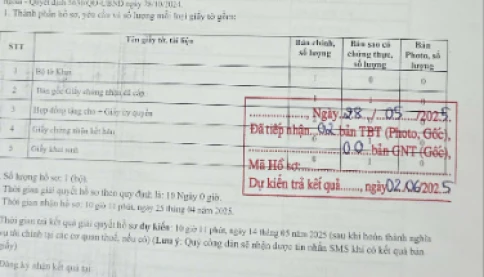 Quyết định 5630/QĐ-UBND ngày 28/10/2024
1. Thành phần hồ sơ, yêu cầu và số lượng mỗi loại giấy tờ gồm:
STT
Tên giấy tờ, tài liệu
Bản chính, số lượng
Bản sao có chứng thực, số lượng
Bản Photo, số lượng
1 Bộ tờ Khai 0 0
2 Bản gốc Giấy chứng nhận đã cấp
3 Hợp đồng tặng cho - Giấy ủy quyền
4 Giấy chứng nhận kết hôn
5 Giấy khai sinh
Ngày 28 / 05 /2025
Đã tiếp nhận 02 bản TBT (Photo, Gốc),
00 bản GNT (Gốc),
Mã Hồ sơ:
Dự kiến trả kết quả......., ngày 02.06/2025
Số lượng hồ sơ: 1 (bộ).
Thời gian giải quyết hồ sơ theo quy định là: 16 Ngày 0 giờ.
Thời gian nhận hồ sơ: 10 giờ 11 phút, ngày 25 tháng 04 năm 2025.
Thời gian trả kết quả giải quyết hồ sơ dự kiến: 10 giờ 11 phút, ngày 14 tháng 05 năm 2025 (sau khi hoàn thành nghĩa
vụ tài chính tại các cơ quan thuế, nếu có) (Lưu ý: Quý công dân sẽ nhận được tin nhắn SMS khi có kết quả bản
giấy)
Đăng ký nhận kết quả tại